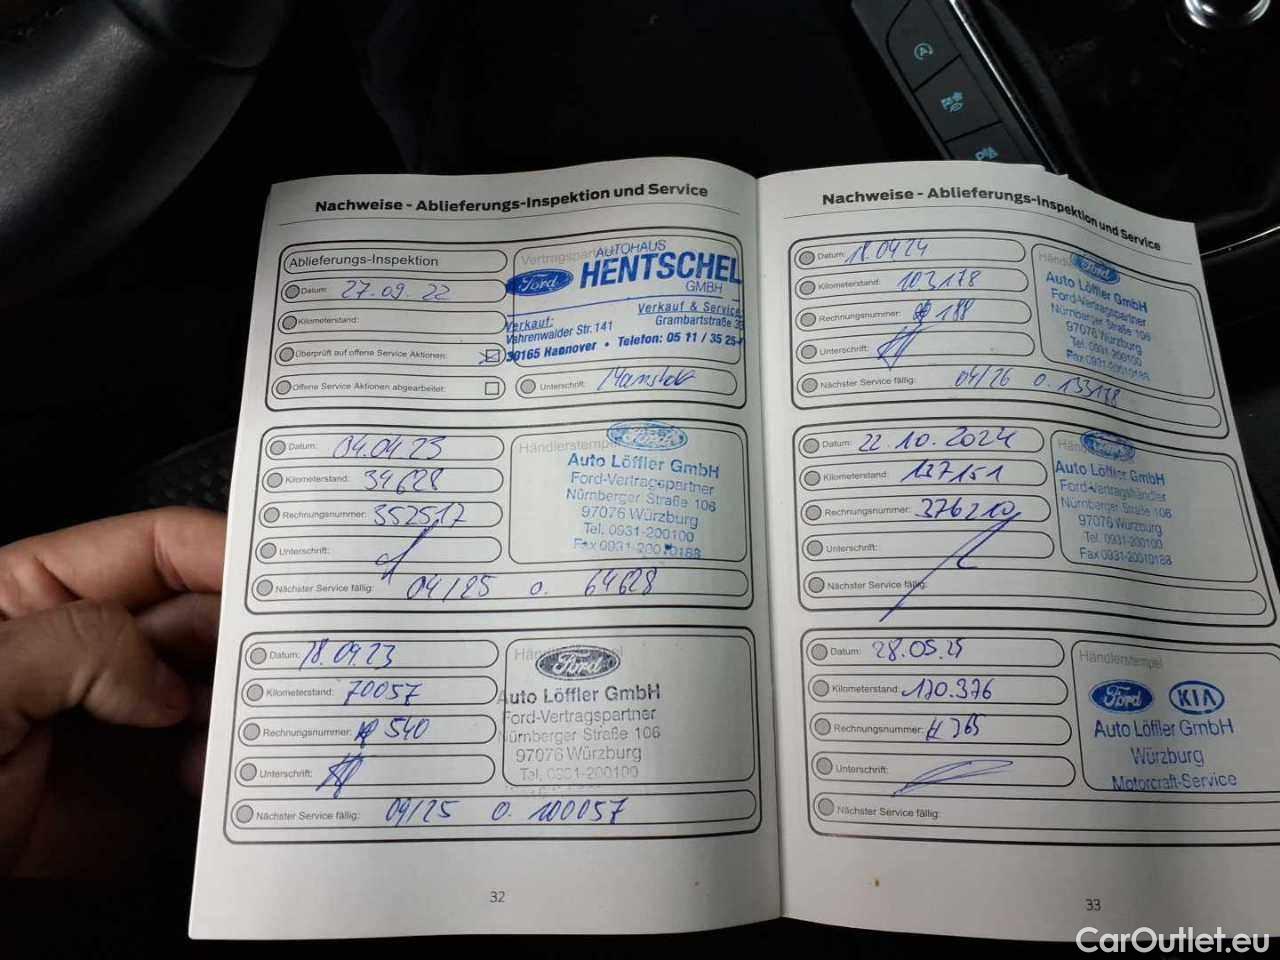 Nachweise - Ablieferungs-Inspektion und Service
Ablieferungs-Inspektion
Datum: 27.09.22
Kilometerstand:
Überprüft auf offene Service Aktionen:
Offene Service Aktionen abgearbeitet:
Vertragspartner
AUTOHAUS
Ford HENTSCHEL
GMBH
Verkauf: Verkauf & Service
Vahrenwalder Str. 141 Grambartstraße
30165 Hannover • Telefon: 05 11 / 35 25-
Unterschrift:
Datum: 04.04.23
Kilometerstand: 34628
Rechnungsnummer: 352517
Unterschrift:
Nächster Service fällig: 04/25 o. 64628
Händlerstempel
Ford
Auto Löffler GmbH
Ford-Vertragspartner
Nürnberger Straße 106
97076 Würzburg
Tel. 0931-200100
Fax 0931-20010188
Datum: 18.09.23
Kilometerstand: 70057
Rechnungsnummer: 540
Unterschrift:
Nächster Service fällig: 09/25 o. 100057
Händlerstempel
Ford
Auto Löffler GmbH
Ford-Vertragspartner
Nürnberger Straße 106
97076 Würzburg
Tel. 0931-200100
32
Nachweise - Ablieferungs-Inspektion und Service
Datum: 18.04.24
Kilometerstand: 103178
Rechnungsnummer: 188
Unterschrift:
Nächster Service fällig: 04/26 o. 133178
Ford
Auto Löffler GmbH
Ford-Vertragspartner
Nürnberger Straße 106
97076 Würzburg
Tel. 0931-200100
Fax 0931-20010188
Datum: 22.10.2024
Kilometerstand: 137151
Rechnungsnummer: 376210
Unterschrift:
Nächster Service fällig:
Auto Löffler GmbH
Ford-Vertragshändler
Nürnberger Straße 106
97076 Würzburg
Tel. 0931-200100
Fax 0931-20010188
Datum: 28.05.25
Kilometerstand: 170.376
Rechnungsnummer: 365
Unterschrift:
Nächster Service fällig:
Händlerstempel
Ford KIA
Auto Löffler GmbH
Würzburg
Motorcraft-Service
33
CarOutlet.eu